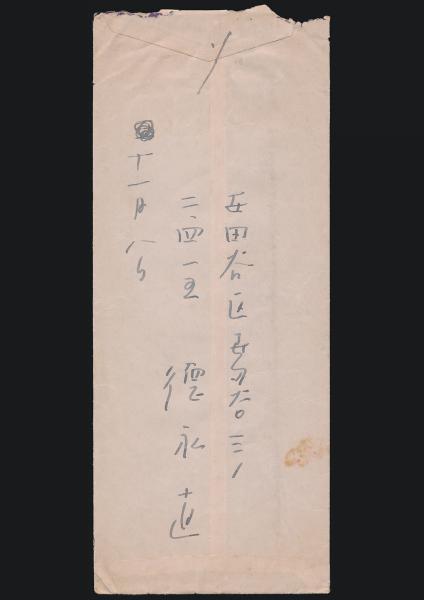 〆
世田谷区世田谷三ノ
二四一五
徳永直
十一月八日